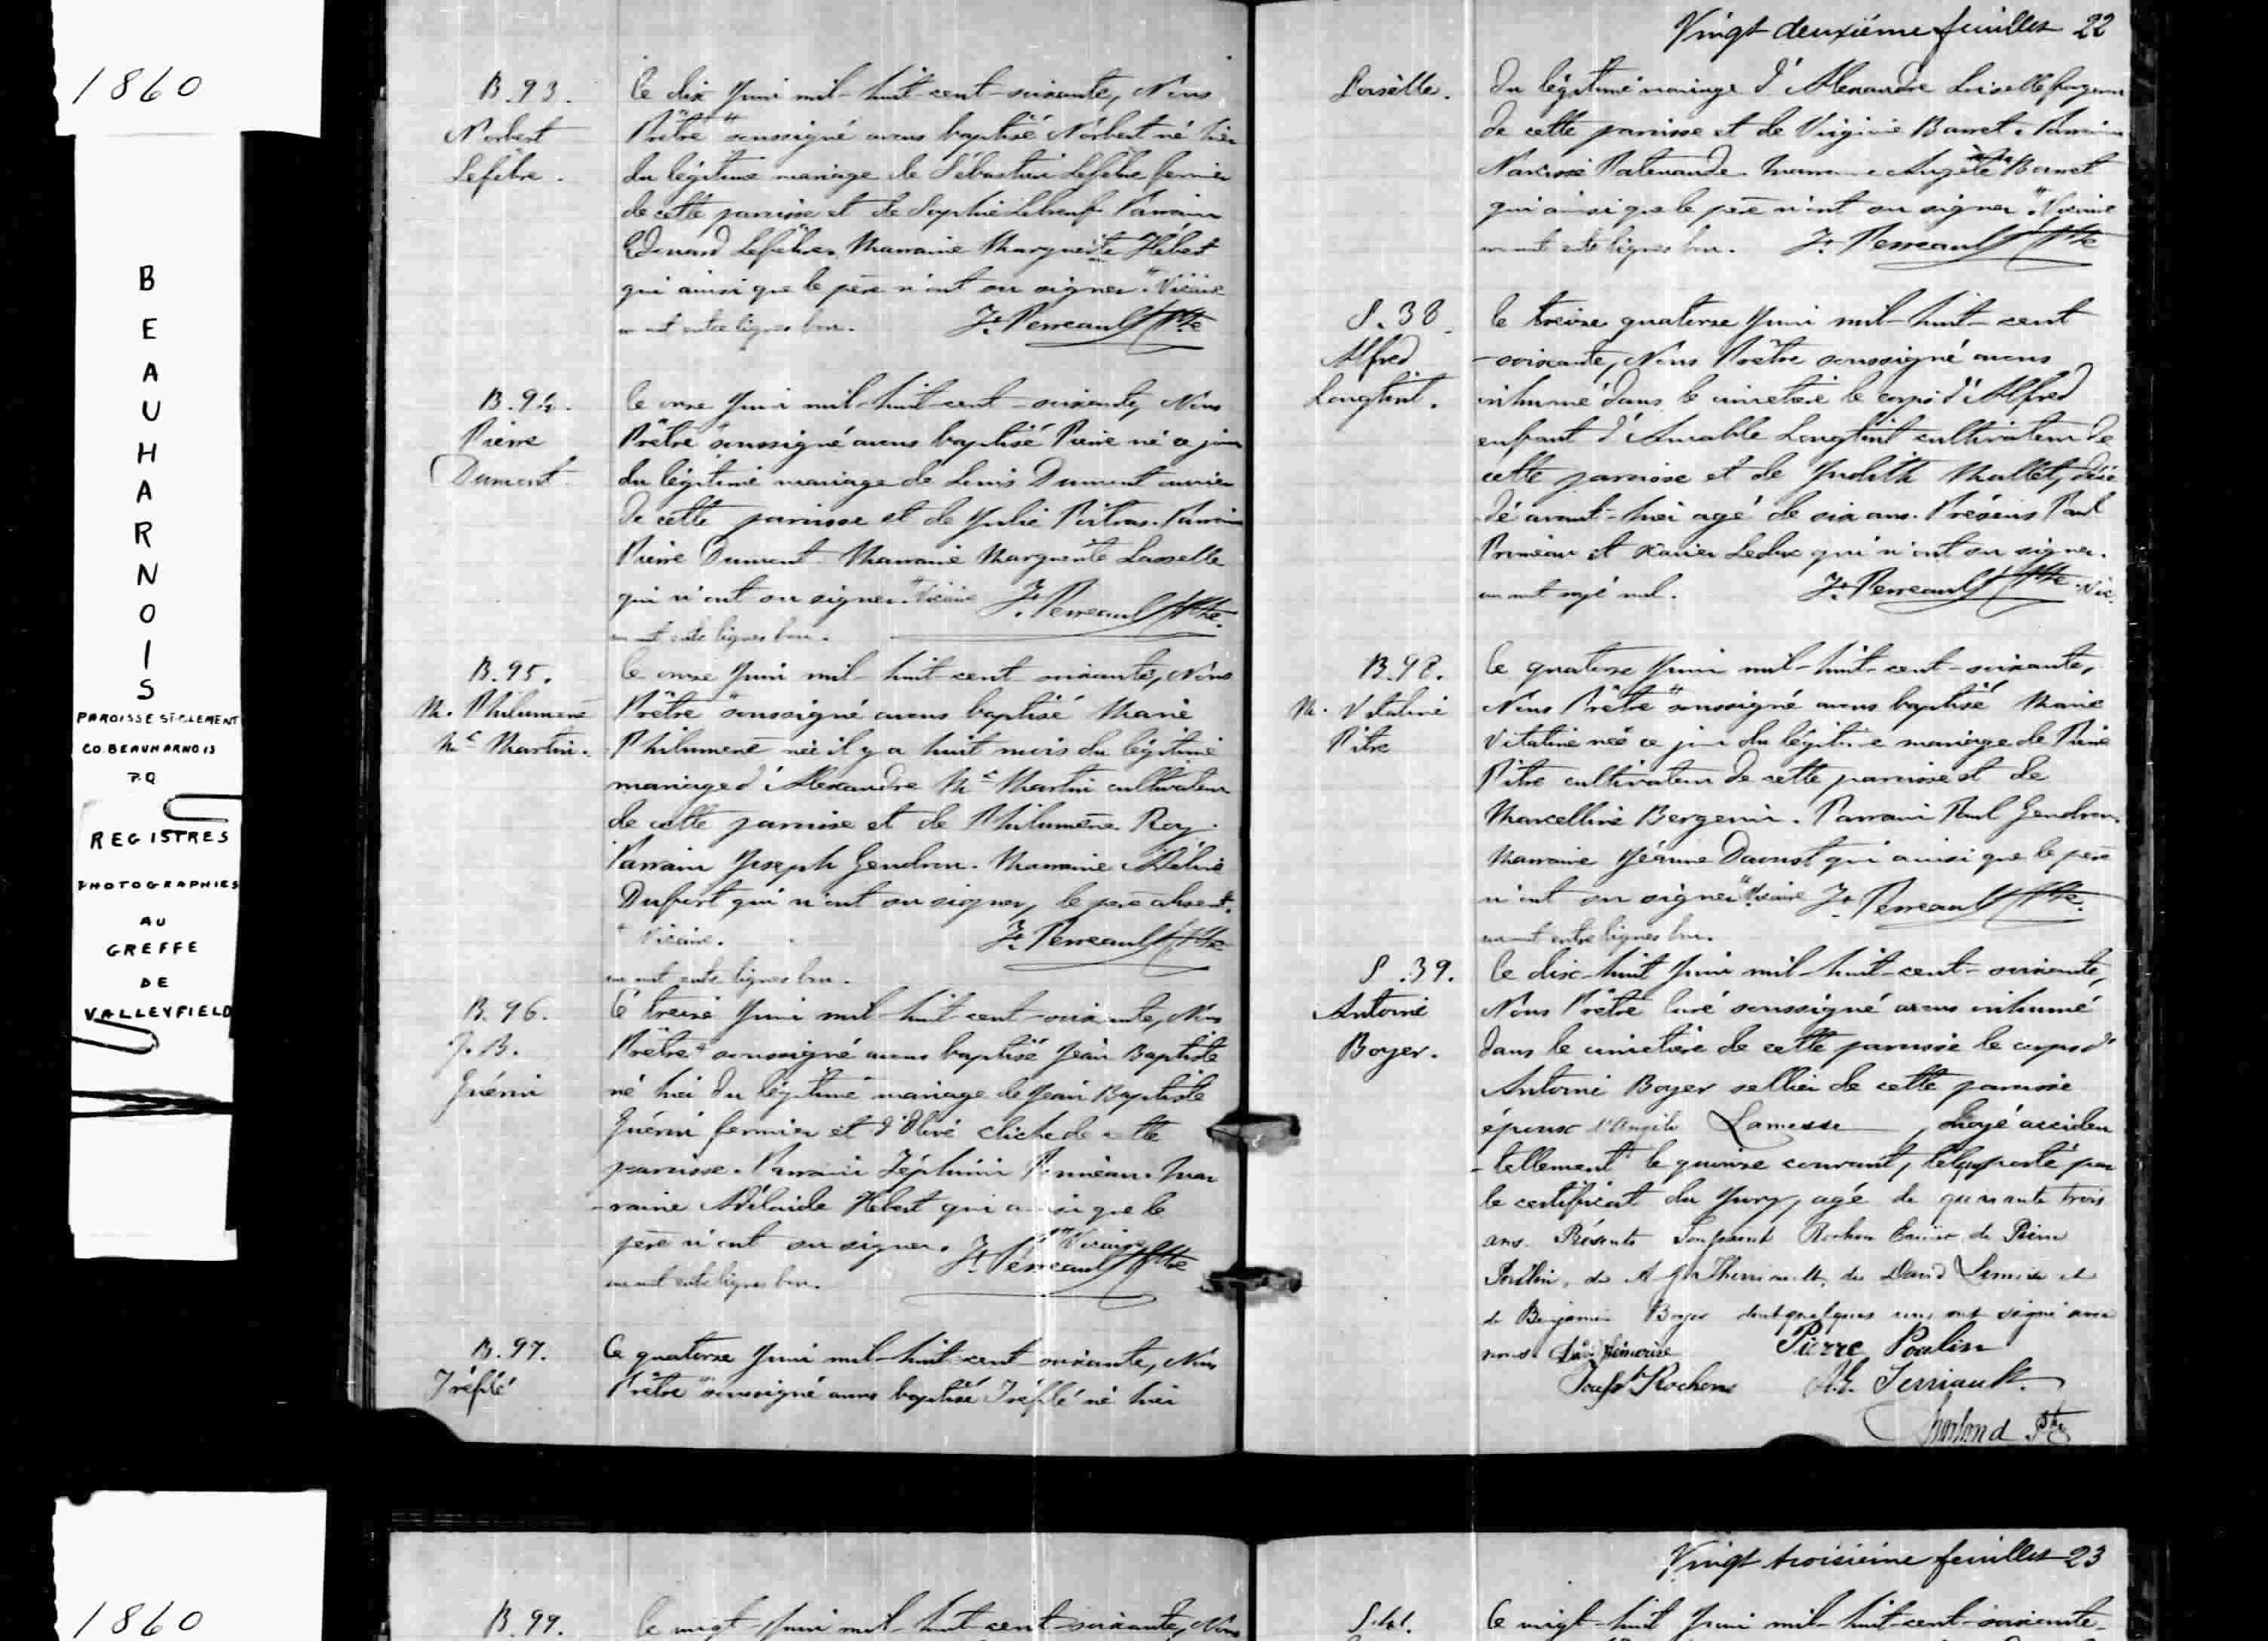 1860
B
E
A
U
H
A
R
N
O
I
S
PAROISSE ST-CLEMENT
CO. BEAUHARNOIS
P.Q
REGISTRES
PHOTOGRAPHIES
AU
GREFFE
DE
VALLEYFIELD
B. 93.
Norbert
Lefebre.
Le dix Juin mil-huit-cent-soixante, Nous
Prêtre " soussigné avons baptisé Norbert né hier
du légitime mariage de Sébastien Lefebre fermier
de cette paroisse et de Sophie Leboeuf. Parrain
Edouard Lefebre. Marraine Marguerite Hébert
qui ainsi que le père n'ont su signer. " Vicaire
un mot entre lignes bon. Jh. Perreault Ptre
B. 94.
Pierre
Dumont
Le onze Juin mil-huit-cent-soixante, Nous
Prêtre " soussigné avons baptisé Pierre né ce jour
du légitime mariage de Louis Dumont ouvrier
de cette paroisse et de Julie Poitras. Parrain
Pierre Dumont. Marraine Marguerite Lasselle
qui n'ont su signer. " Vicaire Jh. Perreault Ptre.
un mot entre lignes bon.
B. 95.
M. Philumène
Mc Martin.
Le onze Juin mil-huit-cent soixante, Nous
Prêtre " soussigné avons baptisé Marie
Philumène née il y a huit mois du légitime
mariage d'Alexandre Mc Martin cultivateur
de cette paroisse et de Philumène Roy.
Parrain Joseph Gendron. Marraine Adeline
Dufort qui n'ont su signer, le père absent.
" Vicaire. Jh. Perreault Ptre
un mot entre lignes bon.
B. 96.
J. B.
Guérin
Le treize Juin mil-huit-cent-soixante, Nous
Prêtre " soussigné avons baptisé Jean Baptiste
né hier du légitime mariage de Jean Baptiste
Guérin fermier et d'Olive Cliche de cette
paroisse. Parrain Zéphirin Primeau. Mar
-raine Adélaide Hebert qui ainsi que le
père n'ont su signer. " Vicaire Jh. Perreault Ptre
un mot entre lignes bon.
B. 97.
Tréflé
Le quatorze Juin mil-huit-cent-soixante, Nous
Prêtre " soussigné avons baptisé Tréflé né hier
Vingt deuxième feuillet 22
Loiselle.
du légitime mariage d'Alexandre Loiselle
de cette paroisse et de Virginie Barret. Parrain
Narcisse Patenaude. Marraine Angèle Barret
qui ainsi que le père n'ont su signer. " Vicaire
un mot entre lignes bon. Jh. Perreault Ptre
S. 38.
Alfred
Longtint.
Le treize quatorze Juin mil-huit-cent
-soixante, Nous Prêtre soussigné avons
inhumé dans le cimetière le corps d'Alfred
enfant d'Amable Longtint cultivateur de
cette paroisse et de Judith Mallet, décé
dé avant-hier agé de six ans. Présens Paul
Primeau et Xavier Leduc qui n'ont su signer.
un mot rayé nul. Jh. Perreault Ptre Vic.
B. 98.
M. Vitaline
Pitre
Le quatorze Juin mil-huit-cent-soixante,
Nous Prêtre " soussigné avons baptisé Marie
Vitaline née ce jour du légitime mariage de Pierre
Pitre cultivateur de cette paroisse et de
Marcelline Bergevin. Parrain Paul Gendron.
Marraine Jéanne Daoust qui ainsi que le père
n'ont su signer " Vicaire Jh. Perreault Ptre.
un mot entre lignes bon.
S. 39.
Antoine
Boyer.
Le dix-huit Juin mil-huit-cent-soixante,
Nous Prêtre Curé soussigné avons inhumé
dans le cimetière de cette paroisse le corps d'
Antoine Boyer sellier de cette paroisse
époux d'Angèle Lamesse, noyé acciden
-tellement le quinze courant, tel que porté par
le certificat du Jury, agé de quarante trois
ans. Présents Toussaint Rochon Ecuier de Pierre
Poulin, de A G Therriault, de David Lemieux et
de Benjamin Boyer dont quelques uns ont signé avec
nous. Pierre Poulin
Tousst Rochon A.G. Terriault.
Charland Ptre
1860
B. 99.
Le vingt-Juin mil-huit-cent-soixante, Nous
Vingt troisième feuillet 23
S. 41.
Le vingt-huit Juin mil-huit-cent-soixante-